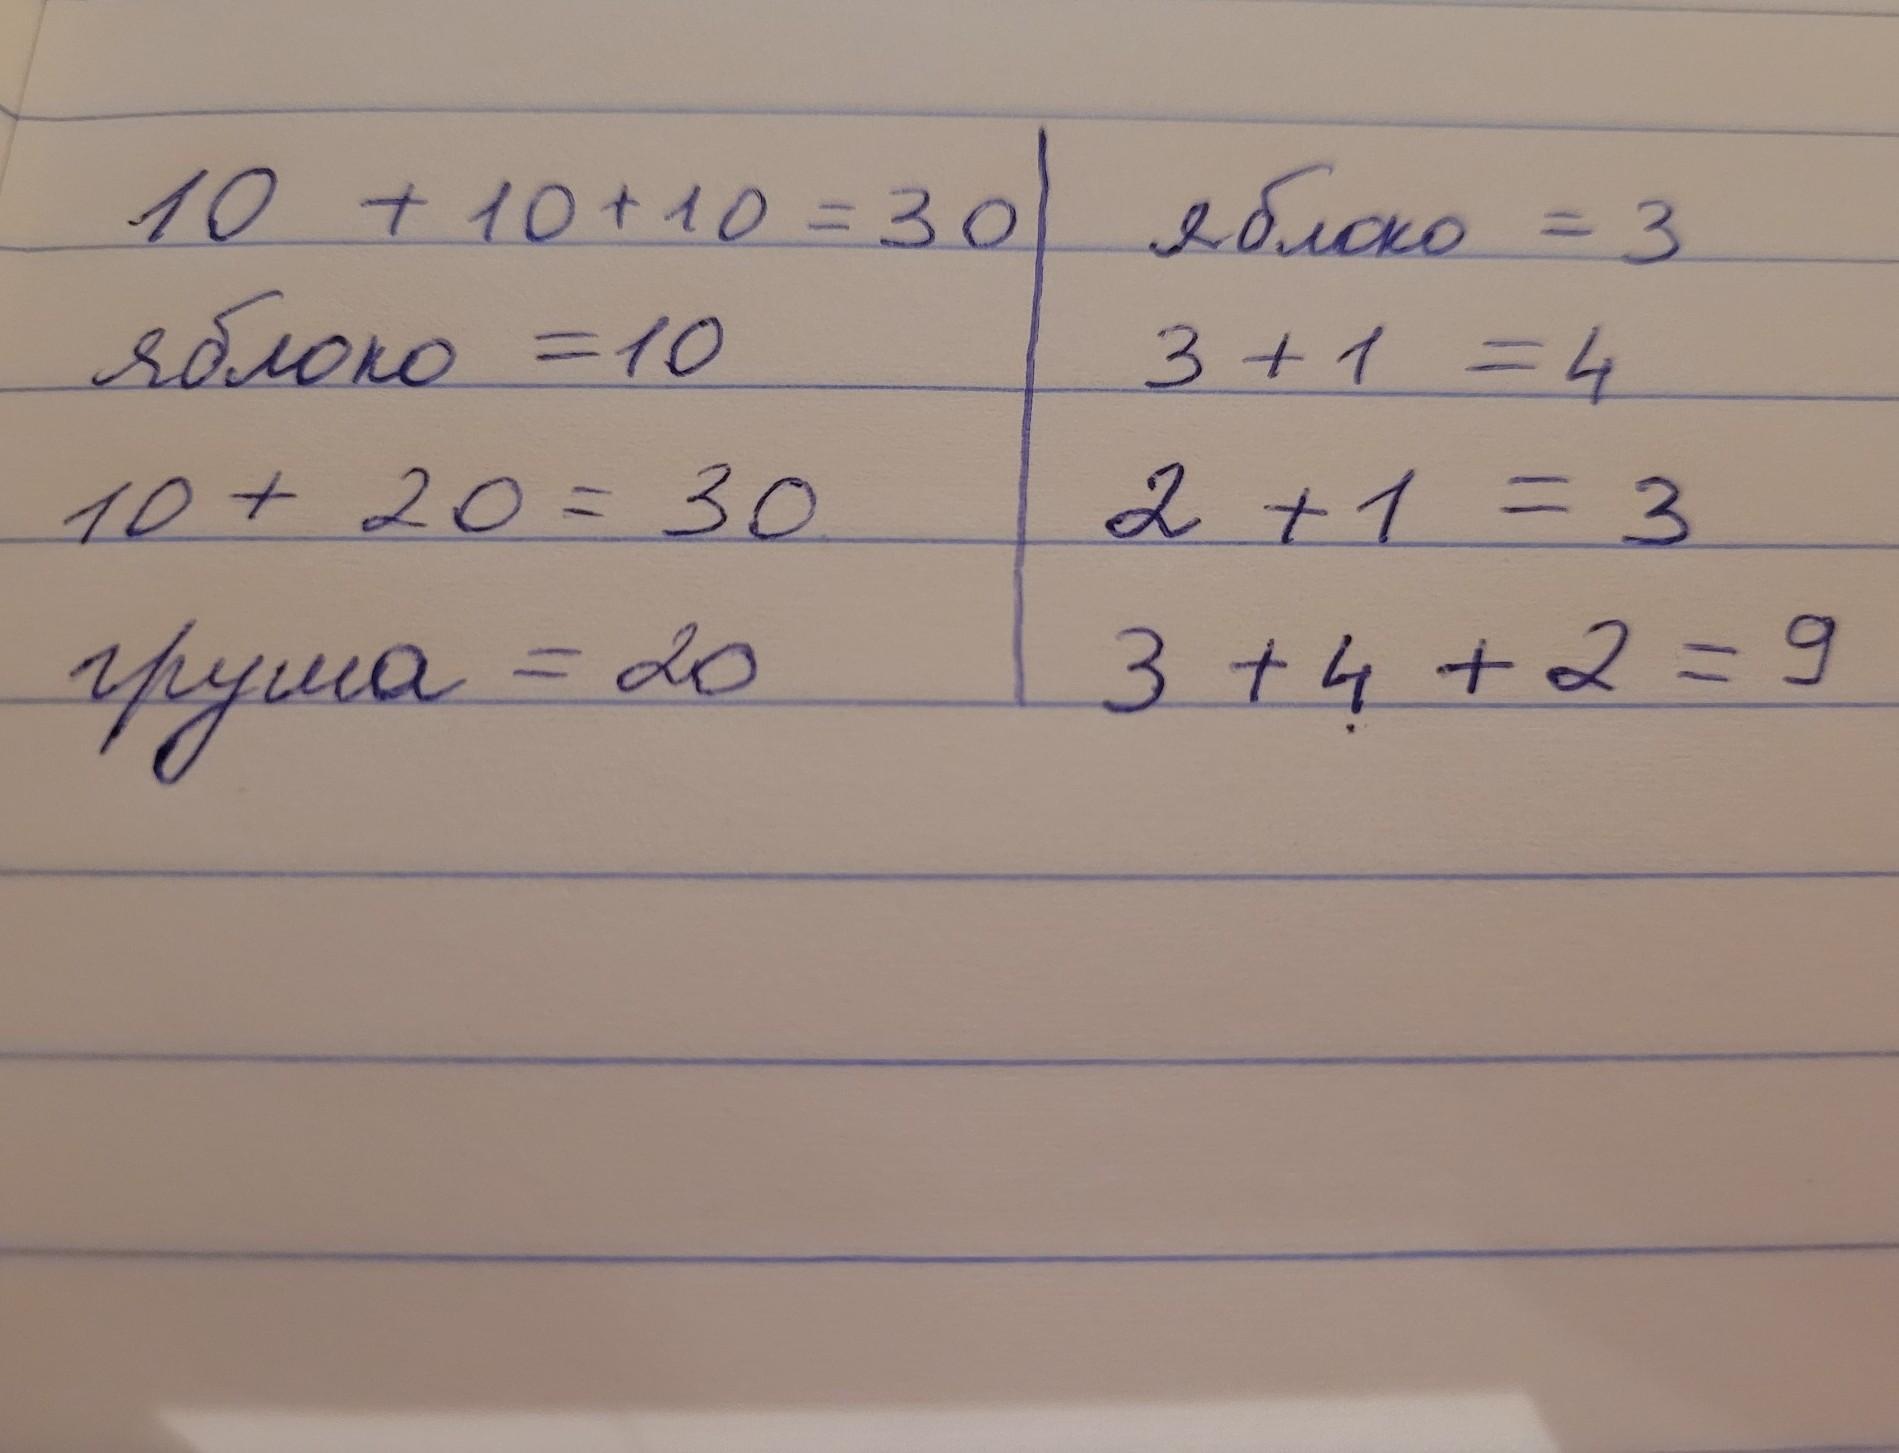 10 + 10 + 10 = 30
яблоко = 10
10 + 20 = 30
груша = 20
яблоко = 3
3 + 1 = 4
2 + 1 = 3
3 + 4 + 2 = 9